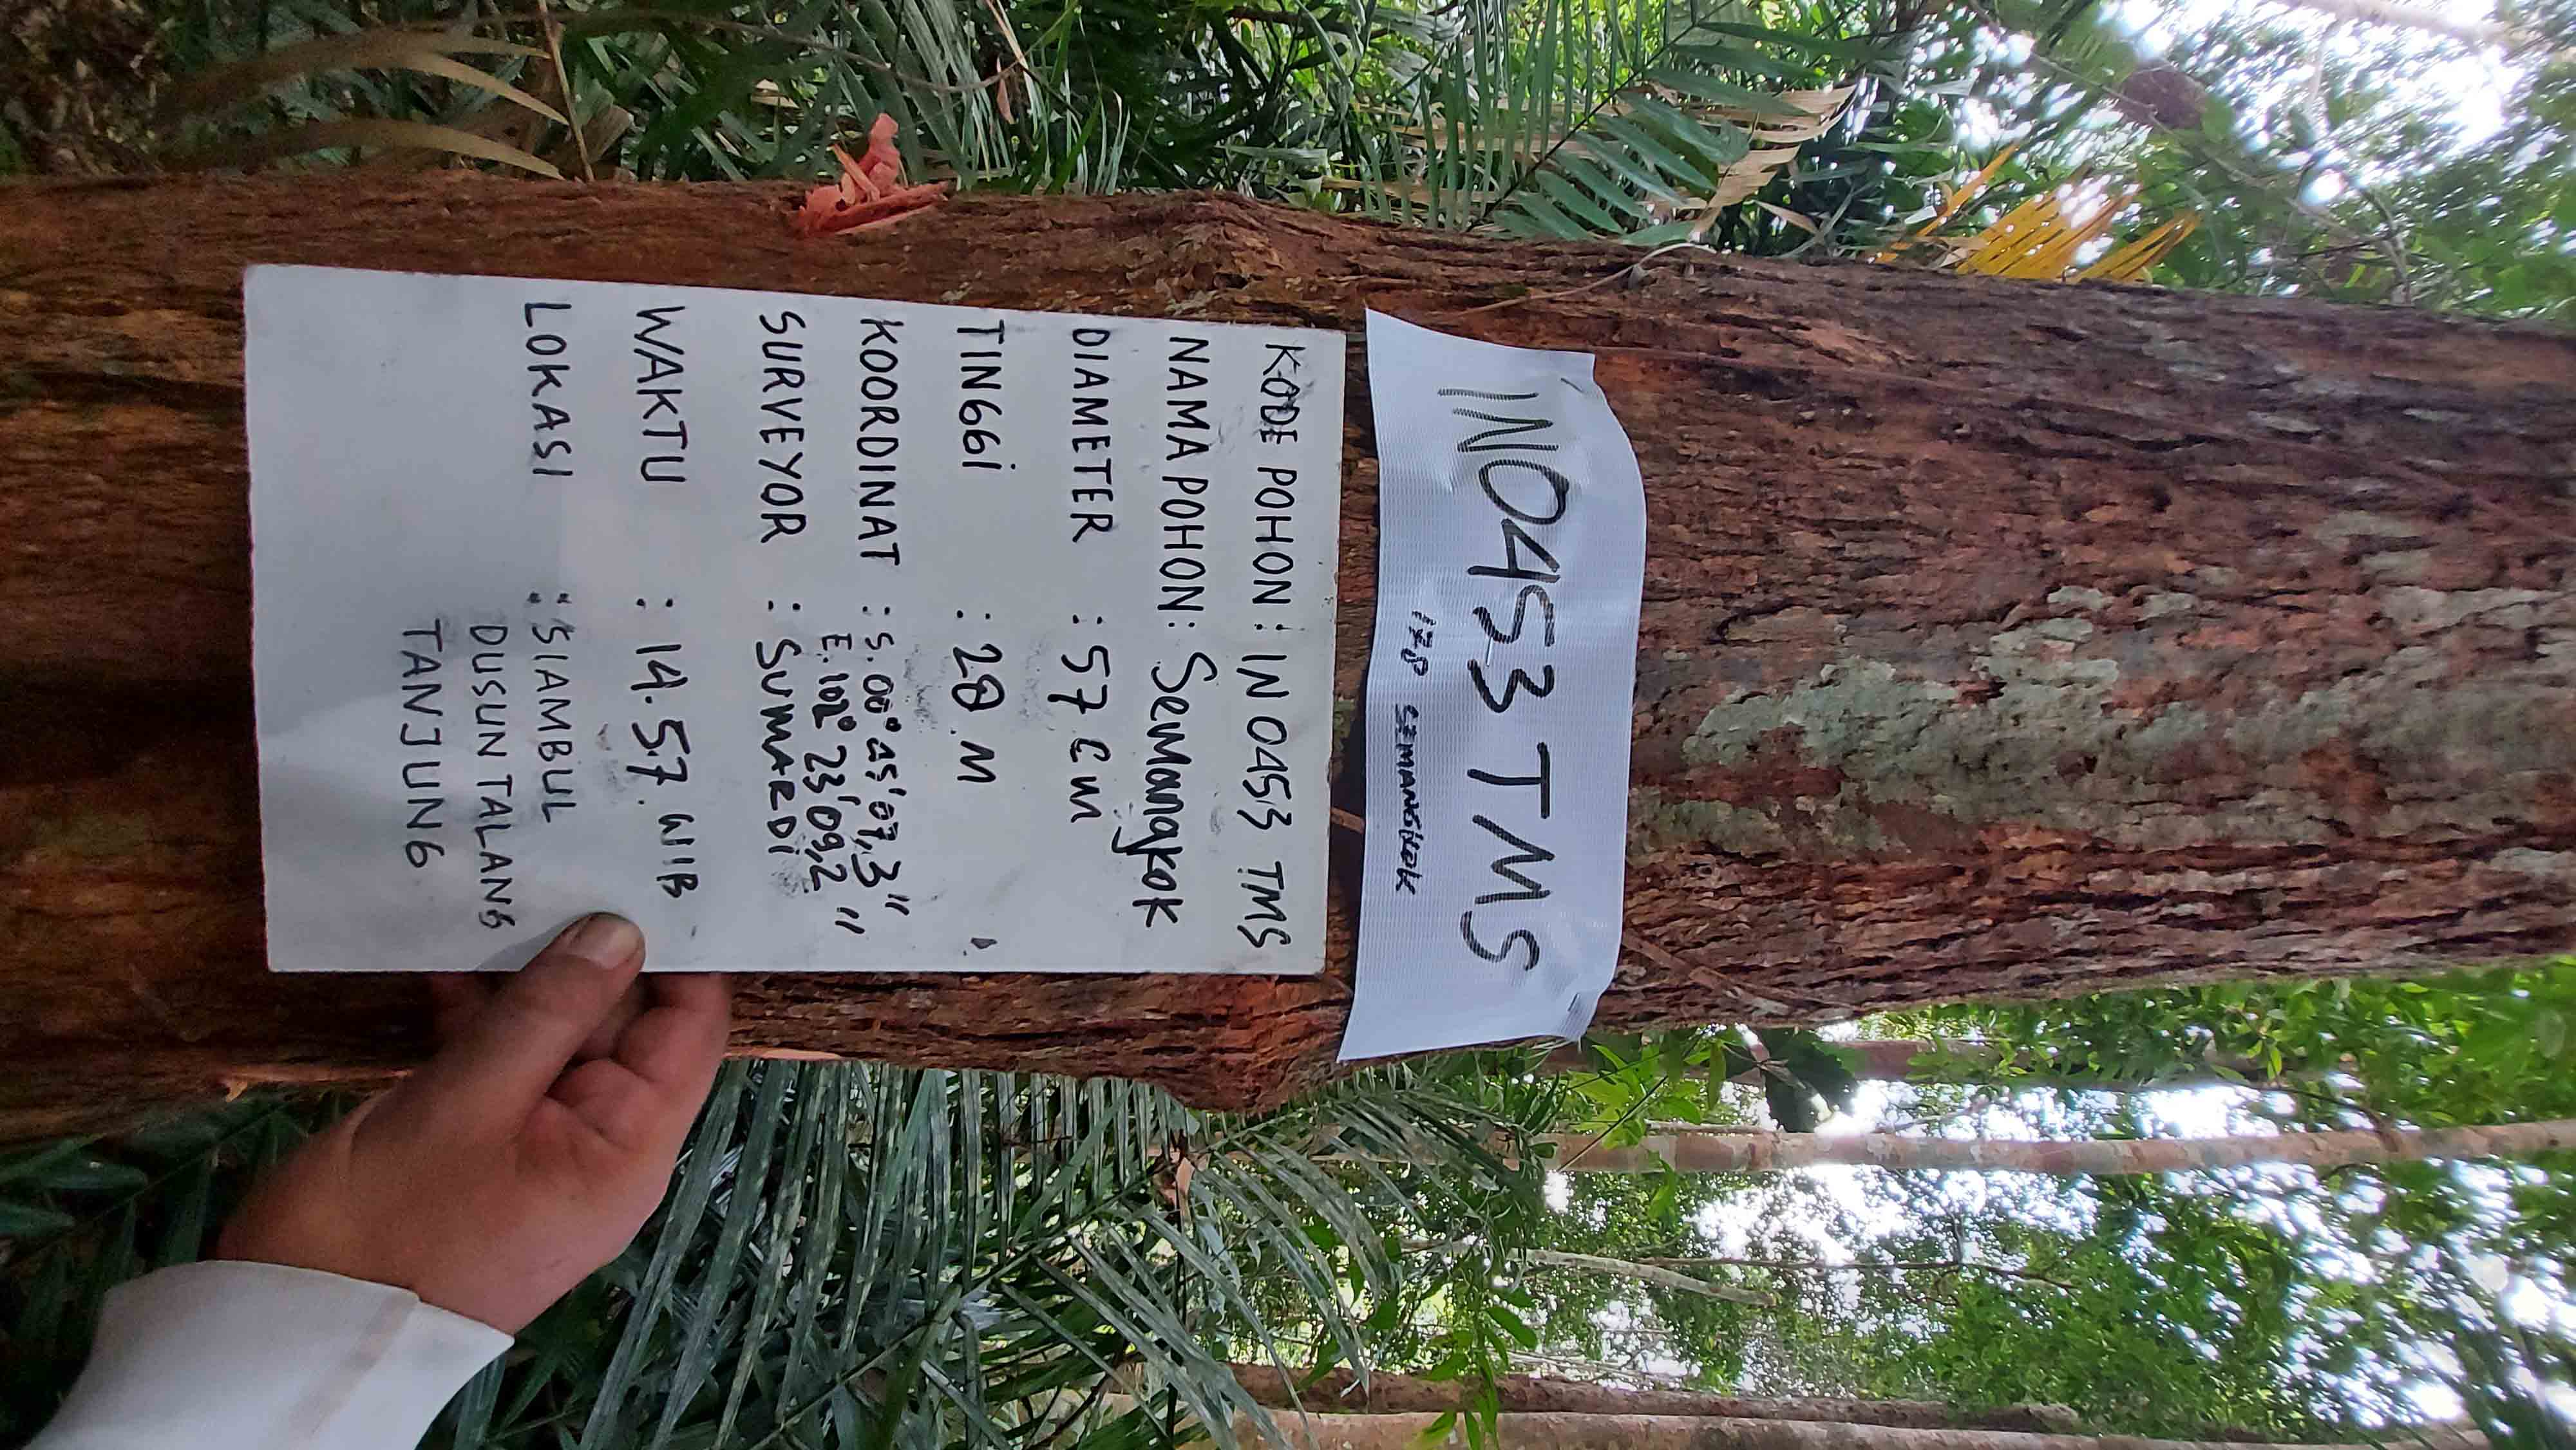 IN0453 TMS
178 SEMANGKOK
KODE POHON : IN 0453 TMS
NAMA POHON : Semangkok
DIAMETER : 57 cm
TINGGi : 28 M
KOORDINAT : S. 00° 45' 07,3"
E. 102° 23' 09,2"
SURVEYOR : SUMARDi
WAKTU : 14.57. WIB
LOKASI : SIAMBUL
DUSUN TALANG
TANJUNG